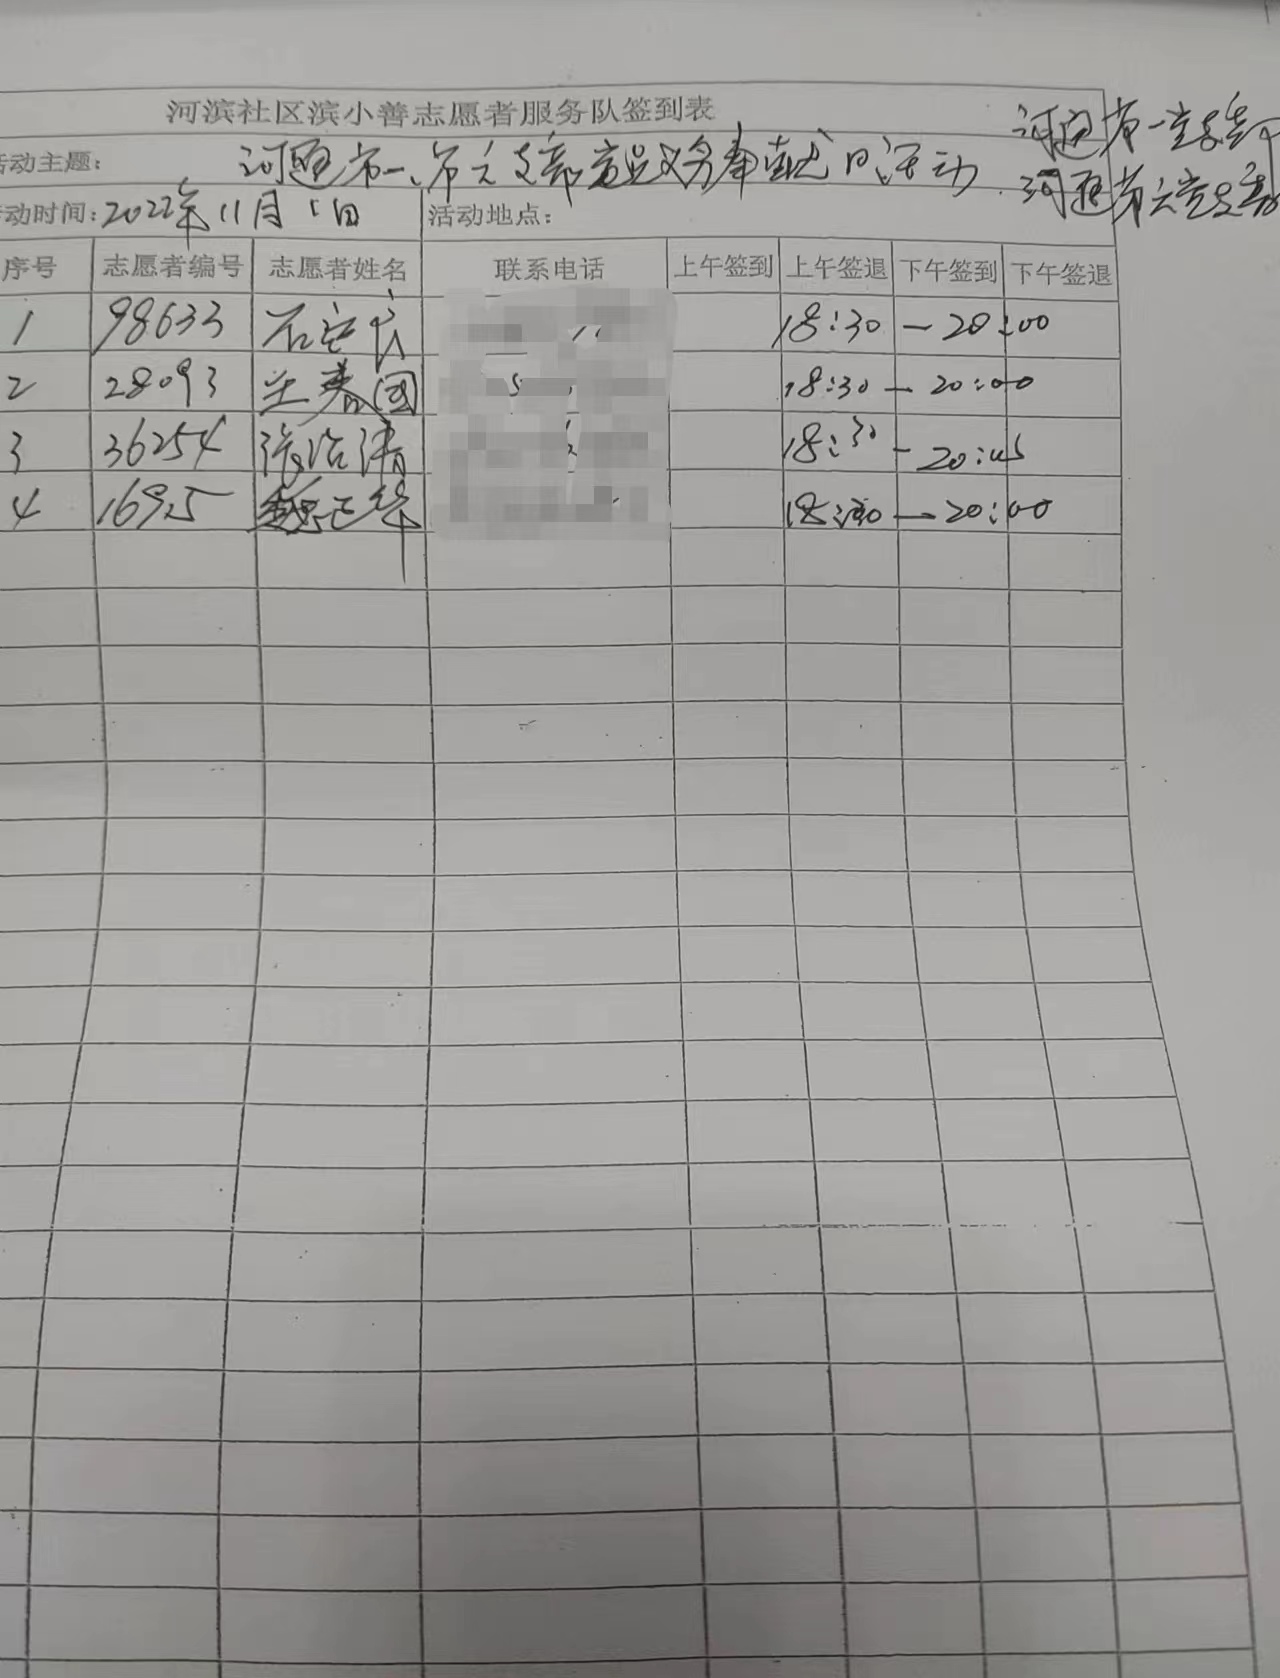 河滨社区滨小善志愿者服务队签到表
河 第一党支部
活动主题: 河 第一、第六支部党员义务奉献日活动
河 第六党支部
动时间: 2022年11月1日 活动地点:
序号 志愿者编号 志愿者姓名 联系电话 上午签到 上午签退 下午签到 下午签退
1 98633 石 18:30 — 20:00
2 28093 国 18:30 — 20:00
3 36254 清 18:30 - 20:05
4 16925 魏 华 18:30 — 20:00